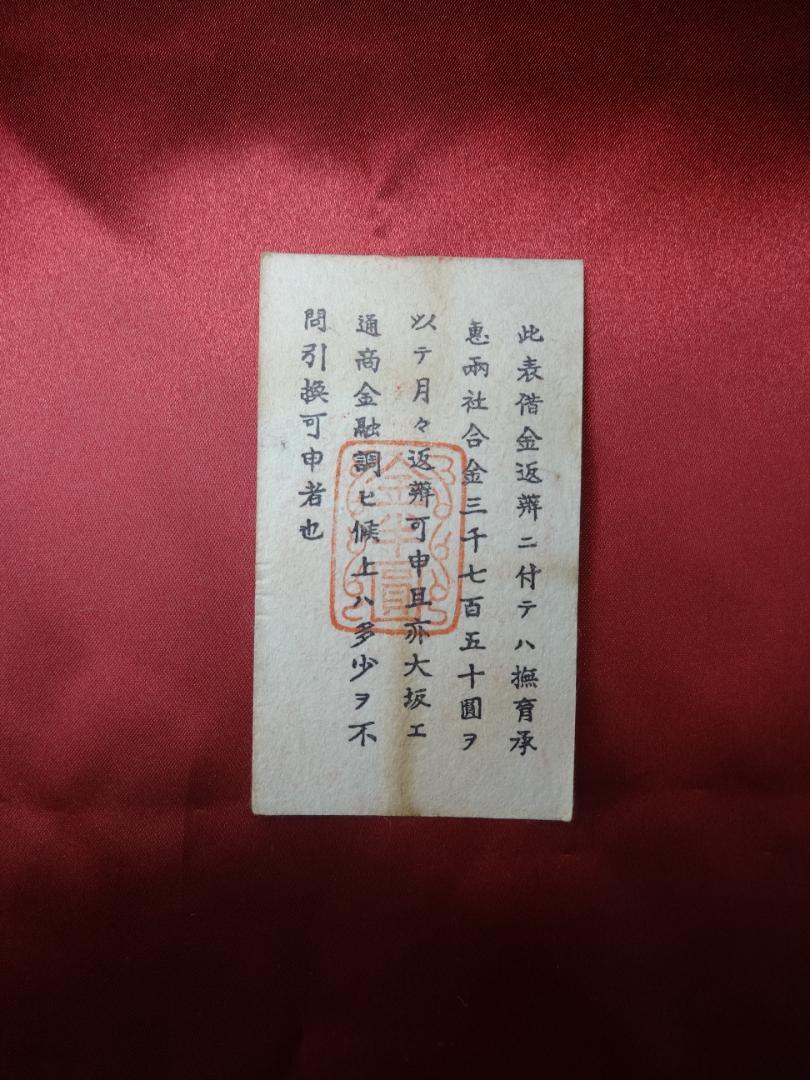 此表借金返辦ニ付テハ撫育承
惠兩社合金三千七百五十圓ヲ
以テ月々返辦可申且亦大坂エ
通商金融調ヒ候上ハ多少ヲ不
問引換可申者也
金半圓